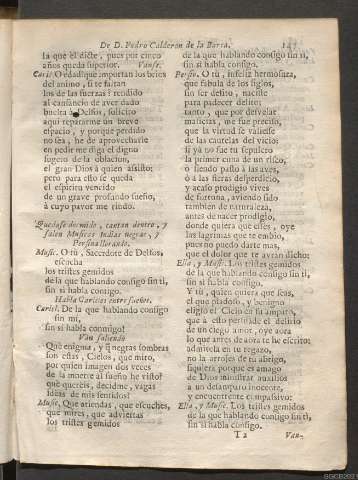 De D. Pedro Calderon de la Barca.
la que èl dicte, pues por cinco
años queda superior. Vanse.
Caris. O edad! que importan los brios
del animo, si te faltan
los de las fuerzas? rendido
al cansancio de aver dado
buelta à Delfos, solicito
aqui repararme un breve
espacio, y porque perdido
no sea, he de aprovecharle
en pedir me diga el digno
sugeto de la oblacion,
el gran Dios à quien assisto;
pero para esto se queda
el espiritu vencido
de un grave profundo sueño,
à cuyo pavor me rindo.
Quedase dormido, cantan dentro, y
salen Musicos Indias negras, y
Persina llorando.
Music. O tù, Sacerdote de Delfos,
escucha
los tristes gemidos
de la que hablando consigo sin ti,
sin sì habla consigo.
Habla Caricles entre sueños.
Carisl. De la que hablando consigo
sin mì,
sin sì habla conmigo!
Van saliendo
Què enigma, y què negras sombras
son estas, Cielos, que miro,
por quien imagen dos veces
de la muerte al sueño he visto?
què quereis, decidme, vagas
ideas de mis sentidos?
Music. Que atiendas, que escuches,
que mires, que adviertas
los tristes gemidos
de la que hablando consigo sin ti,
sin sì habla consigo.
Persin. O tù, infeliz hermosura,
que fabula de los siglos,
sin ser delito, naciste
para padecer delito;
tanto, que por desvelar
malicias, me fue preciso,
que la virtud se valiesse
de las cautelas del vicio:
si yà no fue tu sepulcro
la primer cuna de un risco,
ò siendo pasto à las aves,
ò à las fieras desperdicio,
y acaso prodigio vives
de fortuna, aviendo sido
tambien de naturaleza,
antes de nacer prodigio,
donde quiera que estès, oye
las lagrimas que te embio,
pues no puedo darte mas,
que el dolor que te avrán dicho:
Ella, y Music. Los tristes gemidos
de la que hablando consigo sin ti,
sin sì habla consigo.
Y tù, quien quiera que seas,
el que piadoso, y benigno
eligiò el Cielo en su amparo,
que à esto persuade el delirio
de un ciego amor, oye aora
lo que antes de aora te he escrito:
admitela en tu regazo,
no la arrojes de tu abrigo,
siquiera porque es amago
de Dios ministrar auxilios
à un desamparo inocente,
y encuentrente compassivo:
Ella, y Music. Los tristes gemidos
de la que hablando consigo sin ti,
sin sì habla consigo.
T 2 Van-